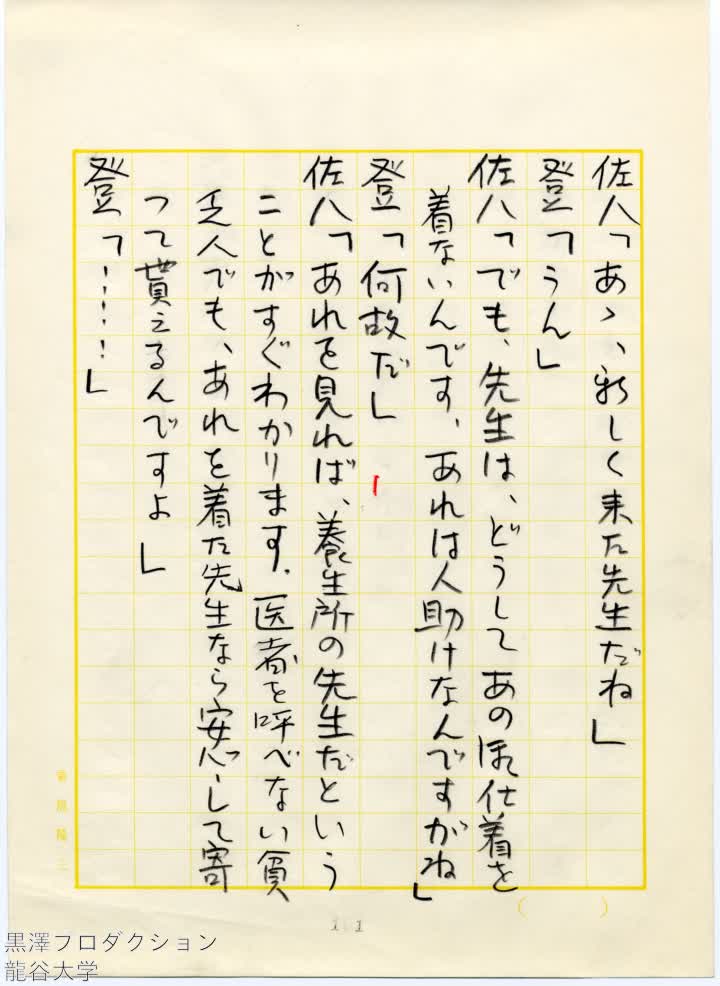 佐八「あゝ、新しく来た先生だね」
登「うん」
佐八「でも、先生は、どうしてあのお仕着を
着ないんです、あれは人助けなんですがね」
登「何故だ」
佐八「あれを見れば、養生所の先生だという
ことがすぐわかります、医者を呼べない貧
乏人でも、あれを着た先生なら安心して寄
って貰えるんですよ」
登「……」
1
黒澤プロダクション
龍谷大学